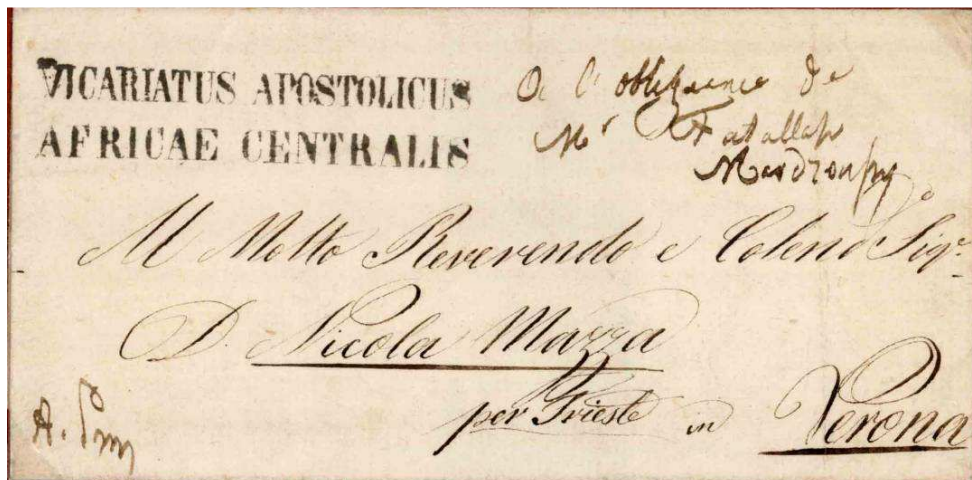 VICARIATUS APOSTOLICUS
AFRICAE CENTRALIS
A l'obligeance de
Mr Fatallah
Al Molto Reverendo e Colend Sigr.
D. Nicola Mazza
per Trieste in Verona